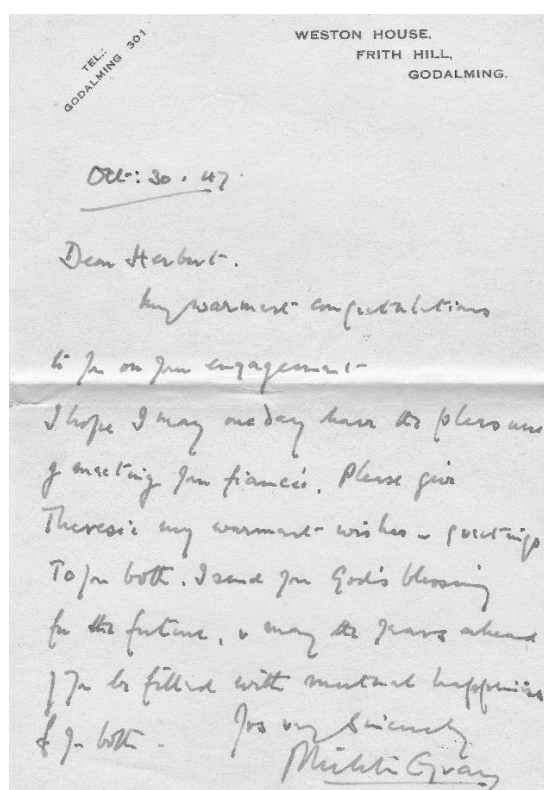 TEL.:
GODALMING 301
WESTON HOUSE,
FRITH HILL,
GODALMING.
Oct: 30. 47.
Dear Herbert.
My warmest congratulations
to you on your engagement
I hope I may one day have the pleasure
of meeting your fiancée. Please give
Theresia my warmest wishes & greetings
To you both. I send you God's blessing
for the future, & may the years ahead
of you be filled with mutual happiness
for you both.
Yrs very Sincerely
Gray